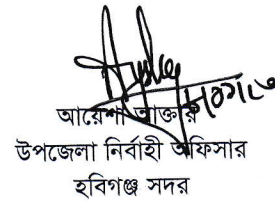 আয়েশা আক্তার
উপজেলা নির্বাহী অফিসার
হবিগঞ্জ সদর